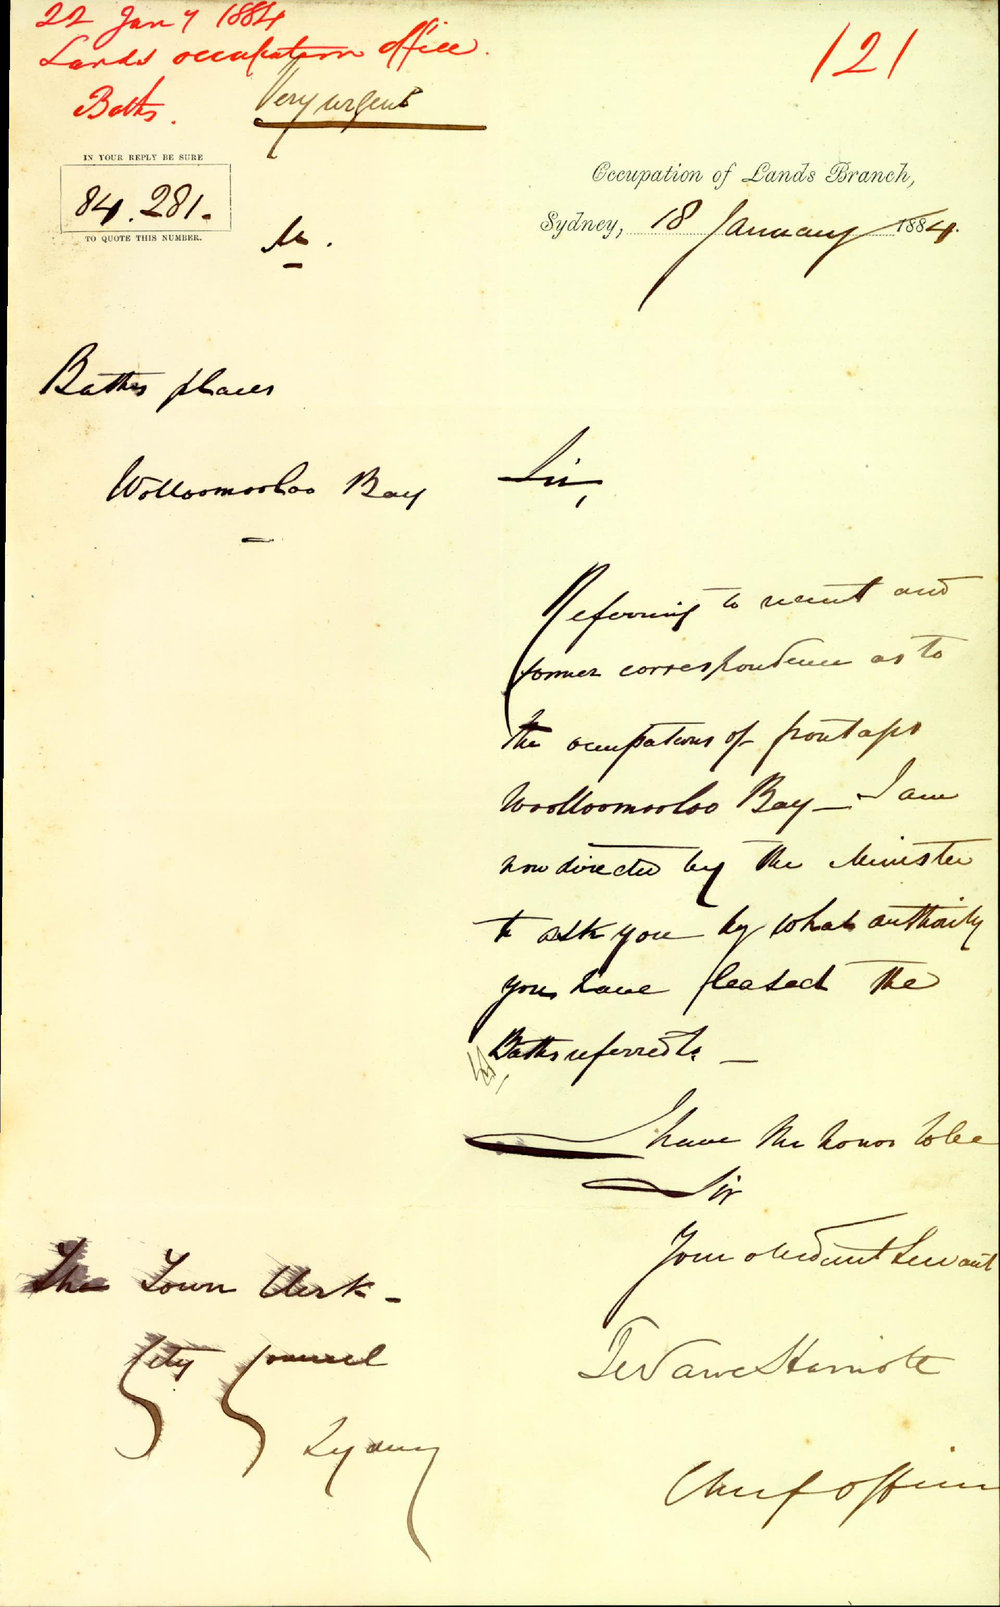 22 Jany 1884
Lands occupation office.
Baths.
121
Very urgent
IN YOUR REPLY BE SURE
84.281.
TO QUOTE THIS NUMBER.
Occupation of Lands Branch,
Sydney, 18 January 1884.
Baths places
Wolloomooloo Bay
Sir,
Referring to recent and
former correspondence as to
the occupations of frontages
Woolloomooloo Bay — I am
now directed by the Minister
to ask you by what authority
you have leased the
Baths referred to —
I have the honor to be
Sir
Your obedient Servant
Chief Officer
The Town Clerk -
City Council
Sydney